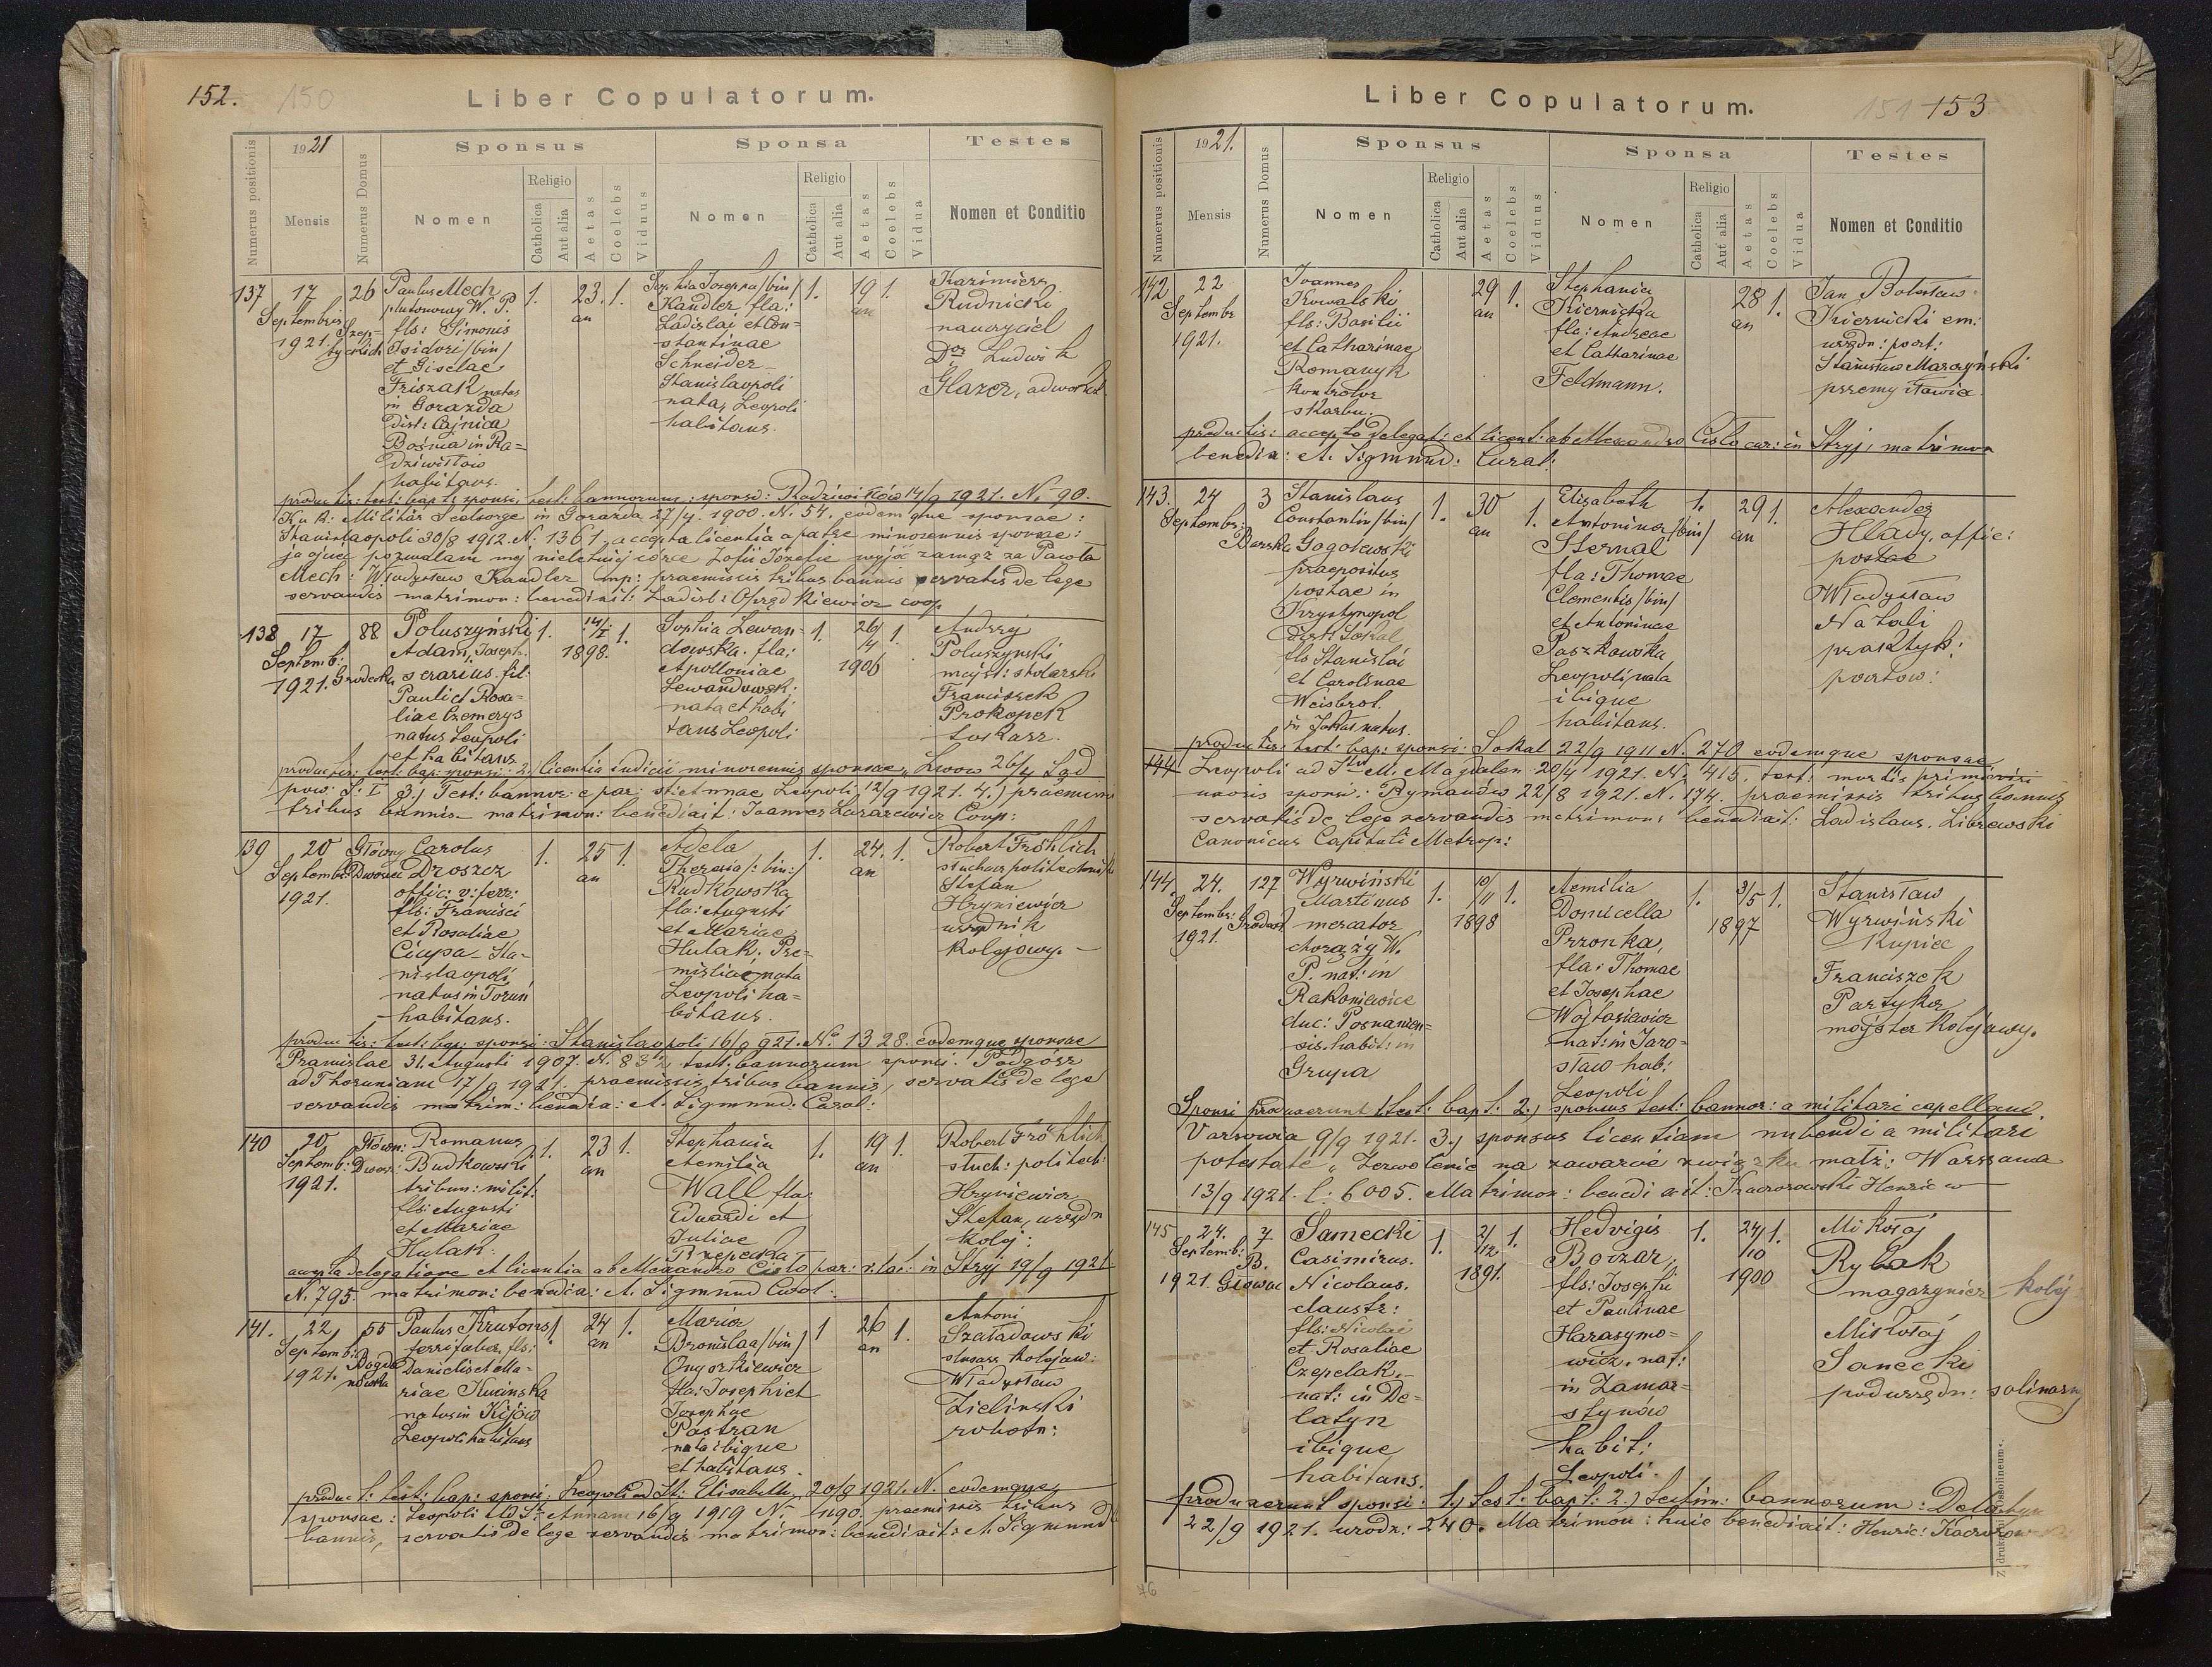 152.
150
Liber Copulatorum.
Numerus positionis
1921
Mensis
Numerus Domus
Sponsus
Nomen
Religio
Catholica
Aut alia
Aetas
Coelebs
Viduus
Sponsa
Nomen
Religio
Catholica
Aut alia
Aetas
Coelebs
Vidua
Testes
Nomen et Conditio
137
17
Septembris
1921.
26
Szep-
tyckich
Paulus Mech
plutonowy W. P.
fls: Simonis
Isidori /bin/
et Giselae
Friszak natus
in Gorazda
dist: Cajnica
Bosnia in Ra=
dziwiłłów
habitans.
1.
23.
an
1.
Sophia Josepha /bin/
Kandler fla:
Ladislai et Con-
stantinae
Schneider
Stanislaopoli
nata, Leopoli
habitans.
1.
19
an
1.
Kazimierz
Rudnicki
nauczyciel
Dor Ludwik
Glazer, adwokat
productis: test: bapt: sponsi, test: bannorum: sponsi: Radziwiłłów 14/9 1921. N. 90.
K u k: Militär Seelsorge in Gorazda 27/4. 1900. N. 54. eodemque sponsae:
Stanislaopoli 30/8 1912. N. 1361, accepta licentia a patre minorennis sponsae:
ja ojciec pozwalam mej nieletniej córce Zofii Józefie wyjść zamąż za Pawła
Mech: Władysław Kandler mp: praemissis tribus bannis servatis de lege
servandis matrimon: benedixit: Ladisl: Oprzędkiewicz coop
138
17
Septemb:
1921.
88
Grodecka
Poluszyński
Adam, Joseph.
serarius. fil:
Pauli et Rosa-
liae Czemerys
natus Leopoli
et habitans
1.
14/I
1898.
1.
Sophia Lewan-
dowska. fla:
Apolloniae
Lewandowsk:
nata et habi
tans Leopoli
1.
26/4
1906
1.
Andrzej
Poluszynski
majst: stolarski
Franciszek
Prokopek
tokarz.
productis: test: bap: sponsi: 2./ licentia iudicii minorennis sponsae „Lwów 26/4 Sąd
pow: S: I 3.) Test: bannor: e par: st: Annae Leopoli 12/9 1921. 4.) praemissis
tribus bannis matrimon: benedixit: Joannes Łazarewicz Coop:
139
20
Septemb:
1921.
Główny
Dworzec
Carolus
Droszcz
offic: v: ferr:
fls: Francisci
et Rosaliae
Ciupa Sta-
nislaopoli
natus in Toruń
habitans.
1.
25
an
1.
Adela
Theresia /: bin:/
Rudkowska
fla: Augusti
et Mariae
Hulak. Pre-
misliae nata
Leopoli ha=
bitans.
1.
24.
an
1.
Robert Fröhlich
słuchacz politechnik
Stefan
Hryniewicz
urzędnik
kolejowy.
productis: test: bap: sponsi: Stanislaopoli 16/9 921. No 1328. eodemque sponsae
Pramislae 31. Augusti 1907. N. 832, test: bannorum sponsi: Podgórz
ad Thoruniam 17/9 1921. praemissis tribus bannis, servatis de lege
servandis matrim: benedix: A. Sigmund: Curat:
140
20
Septemb:
1921.
Główn:
Dworz:
Romanus
Budkowski
tribun: milit:
fls: Augusti
et Mariae
Hulak.
1.
23
an
1.
Stephania
Aemilia
Wall fla:
Eduardi et
Juliae
Rzepecka
1.
19
an
1.
Robert Fröhlich
słuch: politech:
Hryniewicz
Stefan, urzędn
kolej:
accepta delegatione et licentia ab Alexandro Cisło par: r. lat: in Stryj 19/9 1921
N. 795. matrimon: benedix: A. Sigmund Curat:
141.
22
Septemb:
1921.
55
Bogda
nówka
Paulus Krutons
ferrifaber, fls:
Danielis et Ma-
riae Kwinska
natus in Kijów
Leopoli habitans
1.
24
an
1.
Maria
Bronislaa /bin/
Onyszkiewicz
fla: Josephi et
Josephae
Pastran
nata ibique
et habitans.
1
26
an
1.
Antoni
Szaładowski
slusarz kolejow:
Władysław
Zieliński
robotn:
product: test: bap: sponsi, Leopoli ad St: Elisabeth, 20/9 1921. N. eodemque
sponsae: Leopoli ad St: Annam 16/9 1919 N. 1190. praemissis tribus
bannis, servatis de lege servandis matrimon: benedixit: A. Sigmund
Liber Copulatorum.
151
153
Numerus positionis
1921.
Mensis
Numerus Domus
Sponsus
Nomen
Religio
Catholica
Aut alia
Aetas
Coelebs
Viduus
Sponsa
Nomen
Religio
Catholica
Aut alia
Aetas
Coelebs
Vidua
Testes
Nomen et Conditio
142
22
Septembr
1921.
Ioannes
Kowalski
fls: Basilii
et Catharinae
Romanyk
kontrolor
skarbu.
29
an
1.
Stephania
Kiernicka
fla: Andreae
et Catharinae
Feldmann.
28
an
1.
Jan Bolesław
Kiernicki em:
urzędn: poczt:
Stanisław Marczyński
przemysłowiec
productis: accepta delegat: et licent: ab Alexandro Cisło cur: in Stryj, matrimon
benedix: A. Sigmund: Curat:
143.
24
Septembr:
3
Barska
Stanislaus
Constantin /bin/
Gogolewski
praepositus
postae in
Krystynopol
distr: Sokal
fls Stanislai
et Carolinae
Weisbrot.
in natus.
1.
30
an
1.
Elisabeth
Antonina /bin/
Sternal
fla: Thomae
Clementis /bin/
et Antoninae
Paszkowska
Leopoli nata
ibique
habitans.
1.
29
an
1.
Alexander
Hlady, offic:
postae
Władysław
Natali
praktyk:
poctow:
productis: test: bap: sponsi: Sokal 22/9 1911 N. 270 eodemque sponsae
144 Leopoli ad Stam M. Magdalen 20/4 1921. N. 415. test: mortis
uxoris sponsi: Rymanów 22/8 1921. N. 174. praemissis tribus bannis
servatis de lege servandis matrimon: benedixit: Ladislaus. Librewski
Canonicus Capituli Metrop:
144.
24.
Septembr:
1921.
127
Gródeck
Wyrwiński
Martinus
mercator
chorąży W.
P. nat: in
Rakoniewice
duc: Posnanien=
sis. habit: in
Grupa
1.
10/11
1898
1.
Aemilia
Domicella
Przonka,
fla: Thomae
et Josephae
Wojtasiewicz
nat: in Jaro-
sław hab:
Leopoli
1.
3/5
1897
1.
Stanisław
Wyrwiński
Kupiec
Franciszek
Partyka
majster kolejowy.
Sponsi produxerunt 1. test: bapt: 2.) sponsus test: bannor: a militari capellano.
Varsovia 9/9 1921. 3.) sponsus licentiam nubendi a militari
potestate „Zezwolenie na zawarcie związku małż: Warszawa
13/9 1921. l: 6005. Matrimon: benedixit: Kaczorowski Henric w
145
24.
Septemb:
1921.
7
B.
Głowac
Sanecki
Casimirus.
Nicolaus.
claustr:
fls: Nicolai
et Rosaliae
Czepelak.
nat: in De-
latyn
ibique
habitans.
1.
2/12
1891.
1.
Hedvigis
Boczar,
fls: Josephi
et Paulinae
Harasymo=
wicz. nat:
in Zamar=
stynów
habit:
Leopoli.
1.
24/10
1900
1.
Mikołaj
Rybak
magazynier kolej:
Mikołaj
Sanecki
podurzędn: salinarny
produxerunt sponsi: 1.) test: bapt: 2.) testim: bannorum: Delatyn
22/9 1921. urodz: 240. Matrimon: huic benedixit: Henric: Kaczorow
76